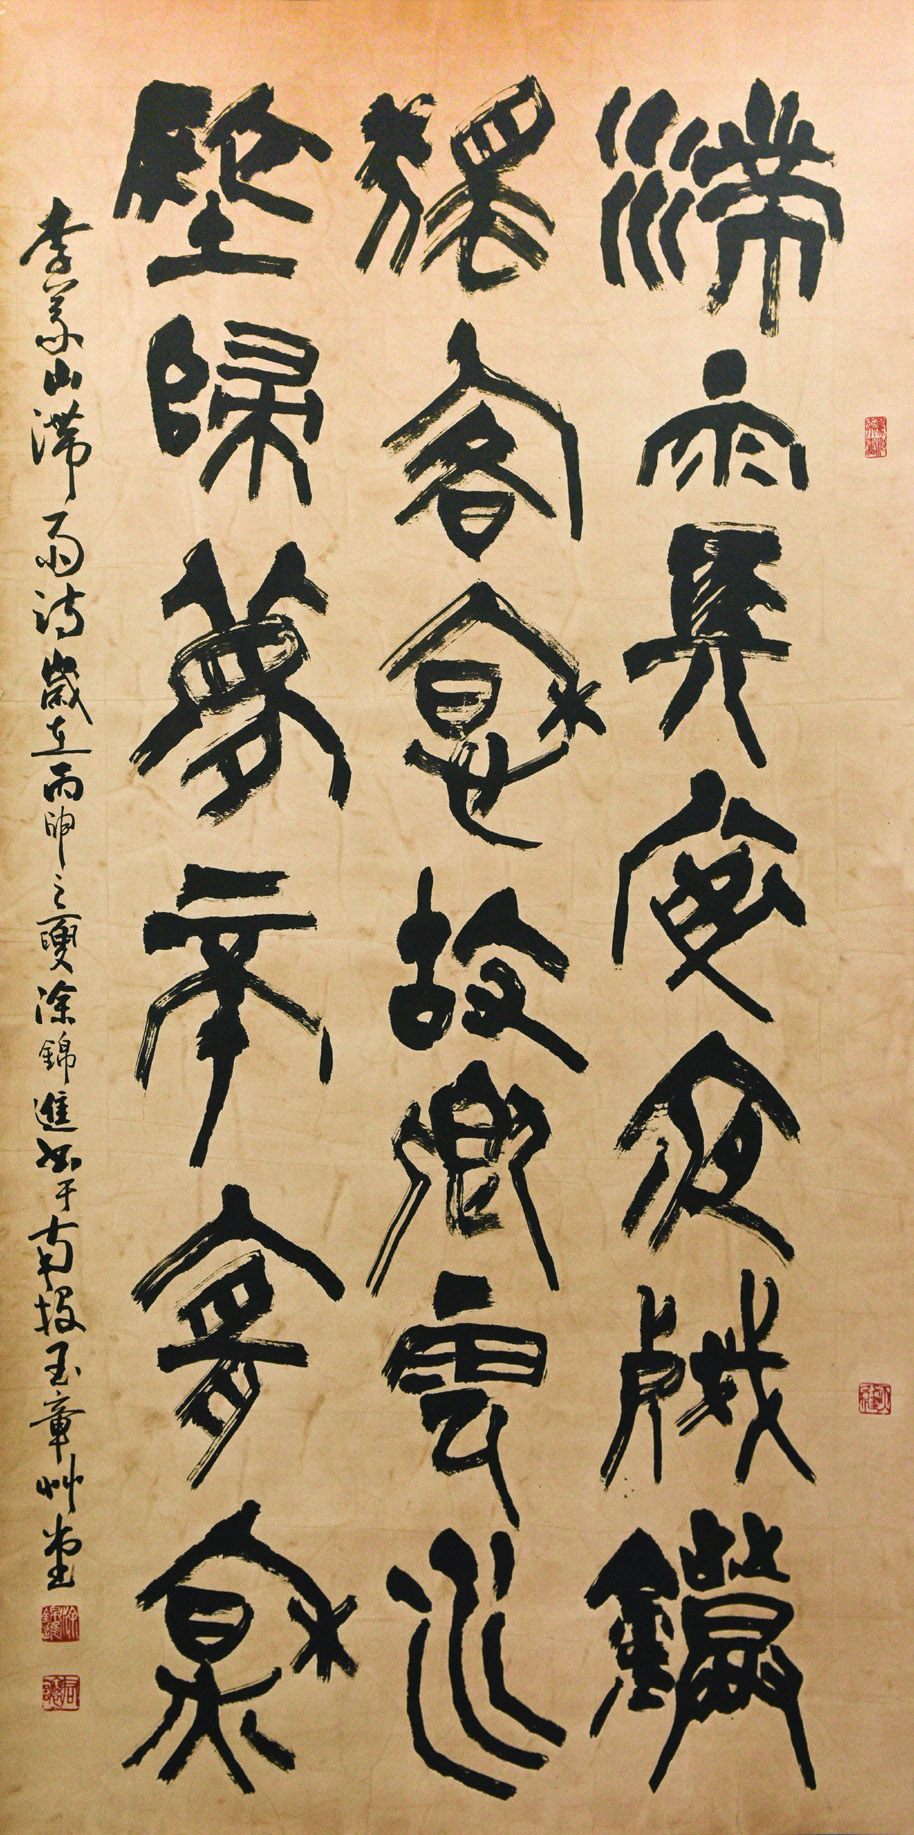 滯雨長安夜殘鐙
獨客愁故鄉雲水
地歸夢不宜秋
李義山滯雨詩歲在丙申之夏涂錦進書于南投玉章艸堂